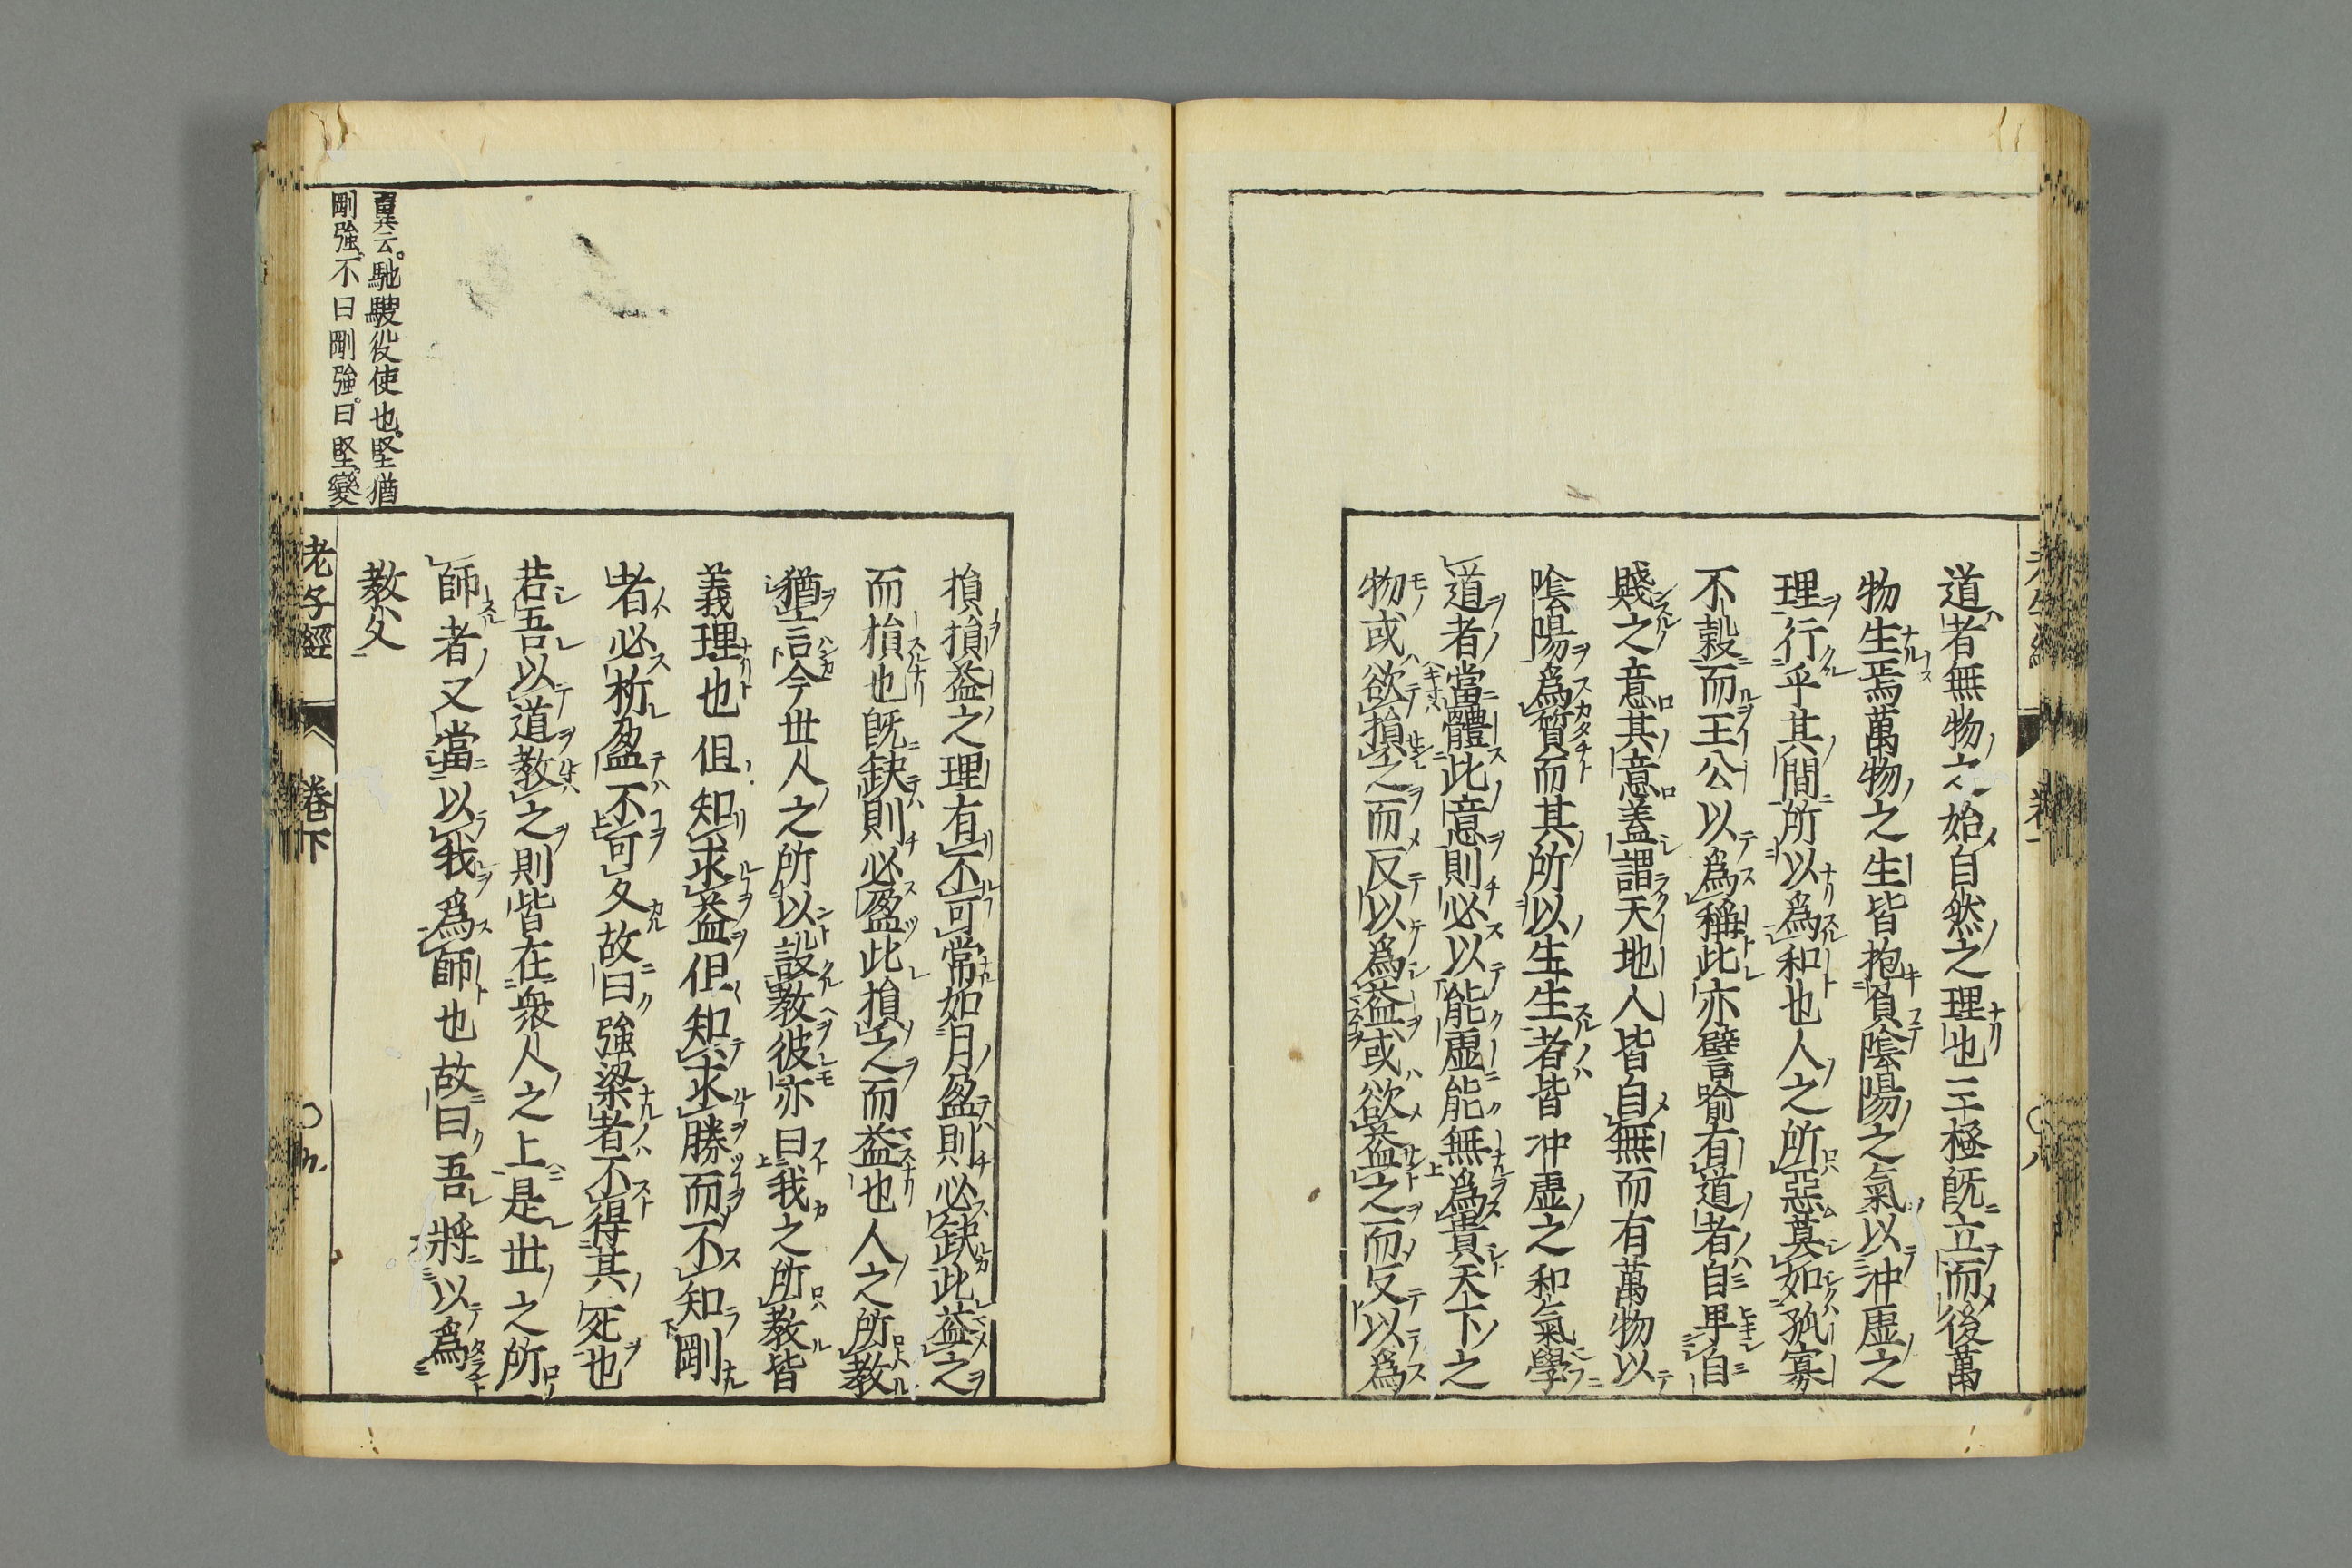 道者無物之始自然之理也三極既立而後萬
物生焉萬物之生皆抱負陰陽之氣以沖虛之
理行乎其間所以爲和也人之所惡莫如孤寡
不穀而王公以爲稱此亦譬喻有道者自卑自
賤之意其意蓋謂天地人皆自無而有萬物以
陰陽爲質而其所以生生者皆沖虛之和氣學
道者當體此意則必以能虛能無爲貴天下之
物或欲損之而反以爲益或欲益之而反以爲
損損益之理有不可常如月盈則必缺此益之
而損也既缺則必盈此損之而益也人之所教
猶言今世人之所以設教彼亦曰我之所教皆
義理也但知求益但知求勝而不知剛
者必折盈不可久故曰強梁者不得其死也
若吾以道教之則皆在衆人之上是世之所
師者又當以我爲師也故曰吾將以爲
教父
翼云。馳騁役使也。堅猶
剛強。不曰剛強。曰堅。變
老子經 卷下 〇九